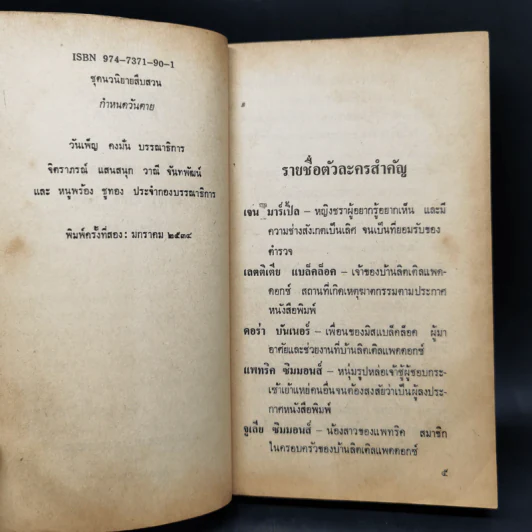 ISBN 974-7371-90-1
ชุดนวนิยายสืบสวน
กำหนดวันตาย
วันเพ็ญ คงมั่น บรรณาธิการ
จิตราภรณ์ แสนสนุก วาณี จันทพัฒน์
และ หนูพร้อง ชูทอง ประจำกองบรรณาธิการ
พิมพ์ครั้งที่สอง: มกราคม ๒๕๓๔
รายชื่อตัวละครสำคัญ
เจน มาร์เปิ้ล – หญิงชราผู้อยากรู้อยากเห็น และมี
ความช่างสังเกตเป็นเลิศ จนเป็นที่ยอมรับของ
ตำรวจ
เลตติเตีย แบล็คล็อค – เจ้าของบ้านลิตเติลแพด-
ดอกซ์ สถานที่เกิดเหตุฆาตกรรมตามประกาศ
หนังสือพิมพ์
ดอร่า บันเนอร์ – เพื่อนของมิสแบล็คล็อค ผู้มา
อาศัยและช่วยงานที่บ้านลิตเติลแพดดอกซ์
แพทริค ซิมมอนส์ – หนุ่มรูปหล่อเจ้าชู้ผู้ชอบกระ-
เซ้าเย้าแหย่คนอื่นจนต้องสงสัยว่าเป็นผู้ลงประ-
กาศหนังสือพิมพ์
จูเลีย ซิมมอนส์ – น้องสาวของแพทริค สมาชิก
ในครอบครัวของบ้านลิตเติลแพดดอกซ์
๕